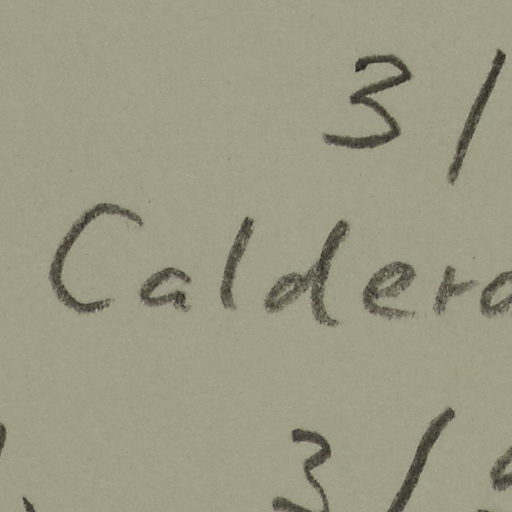 3/
Caldera
3/